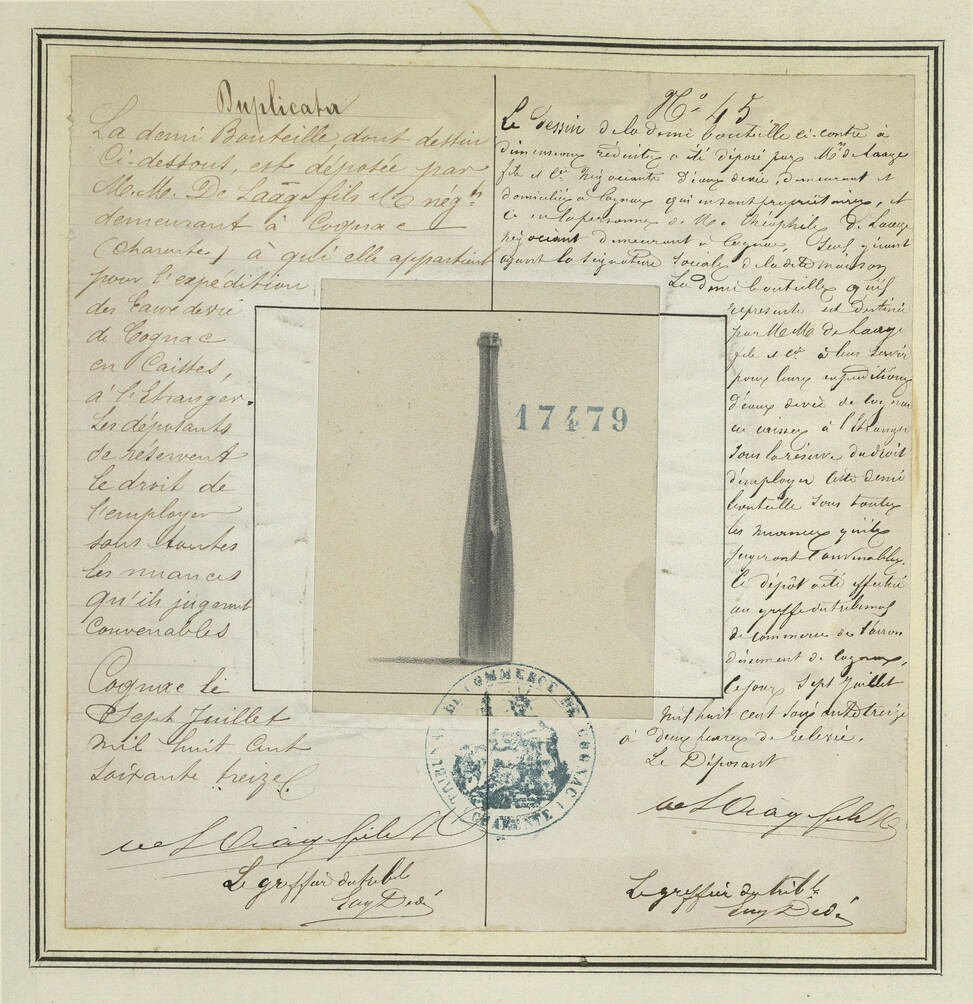 Duplicata
La demi Bouteille, dont dessin
Ci-dessous, est déposée par
M.M. De Laage fils & Cie négts
demeurant à Cognac
(Charente) à qui elle appartient
pour l'expédition
des Eaux de vie
de Cognac
en Caisses,
à l'Etranger.
Les déposants
se réservent
le droit de
l'employer
sous toutes
les nuances
qu'ils jugeront
Convenables
Cognac le
Sept Juillet
mil huit cent
soixante treize
Le greffier du tribl
N° 45
Le dessin de la demi bouteille ci-contre à
dimensions réduites a été déposé par Mrs de Laage
fils et Cie Négociants d'eaux de vie, demeurant et
domiciliés à Cognac qui en sont propriétaires, et
ce en la personne de Mr Théophile de Laage
Négociant demeurant à Cognac, Seul gérant
ayant la signature Sociale de la dite maison
La demi bouteille qu'il
représente est destinée
par MM de Laage
fils et Cie à leur servir
pour leurs expéditions
d'eaux de vie de Cognac
en caisses à l'Etranger
sous la réserve du droit
d'employer cette demi
bouteille sous toutes
les nuances qu'ils
jugeront Convenables.
Le dépôt a été effectué
au greffe du tribunal
de commerce de l'arron
dissement de Cognac,
le jour Sept Juillet
mil huit cent soixante treize
à deux heures de relevée.
Le Déposant
Le greffier du tribl
17479
TRIBUNAL DE COMMERCE DE COGNAC (CHARENTE)